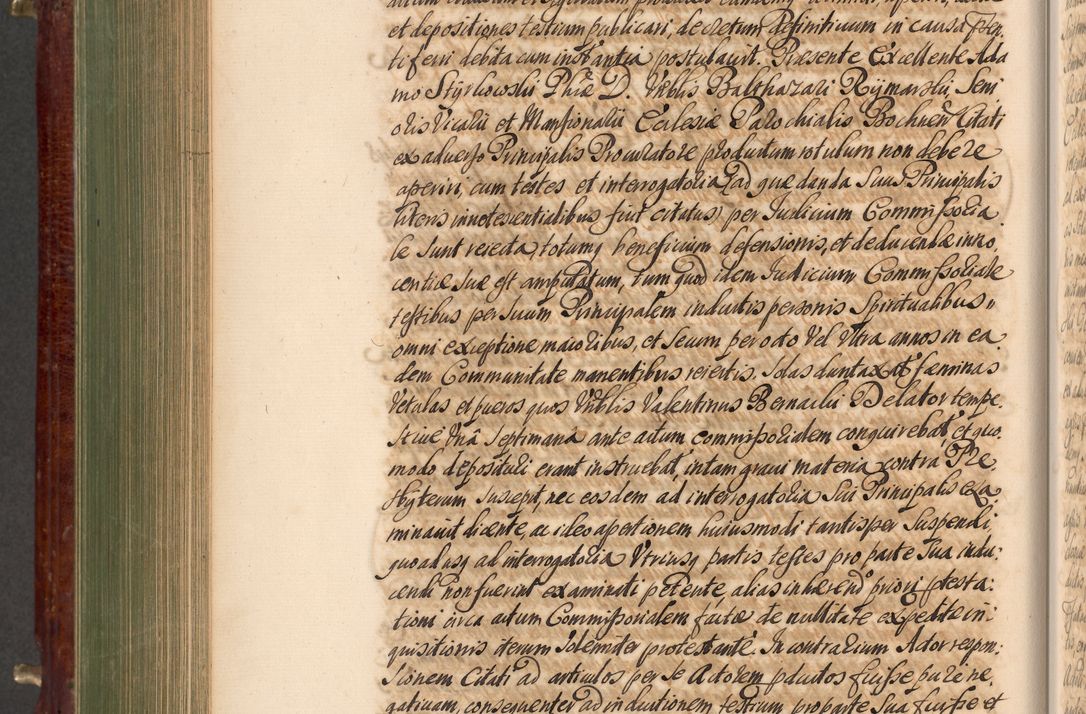 et depositiones testium publicari, decretum definitivum in causa præsen,
ti ferri debita cum instantia postulavit. Præsente Excellente Ada
mo Styrkowski Phiæ D. Vnblis Balthazari Rymarski, Seni
oris Vicarii et Mansionalii Ecclesiæ Parochialis Bochnen Citati
ex adverso Principalis Procuratore productum rotulum non debere
aperiri, cum testes et interrogatoria (ad quæ danda Suus Principalis
literis innotescentialibus fuit citatus) per Iudicium Commissoria
le Sunt reiecta, totumq beneficium defensionis, et deducendæ inno
centiæ suæ est amputatum, tum quod idem Iudicium Commissoriale
testibus per Suum Principalem inductis personis Spiritualibus
omni exceptione maioribus, et Secum per octo vel ultra annos in ea
dem Communitate manentibus reiectis. Solas duntaxat fæminas
Vetulas et pueros quos Vnblis Valentinus Bernacki Delator tempe,
stive Vna Septimana ante actum commissorialem conquirebat, et quo,
modo deposituri erant instruebat, in tam gravi materia contra Præ,
sbyterum suscepit, nec eosdem ad interrogatoria Sui Principalis exa,
minavit dicente, ac ideo apertionem huiusmodi tantisper Suspendi,
quoadusq ad interrogatoria Vtriusq partis testes pro parte Sua indu,
cendi non fuerint examinati petente, alias inhærend priori protesta:
tioni circa actum Commissorialem factæ de nullitate expeditæ in:
quisitionis iterum Solemniter protestante. In contrarium Actor respon:
sionem Citati ad articulos per se Actorem productos fuisse pure ne,
gativam, consequenter ad inductionem testium pro parte Sua fuisse et